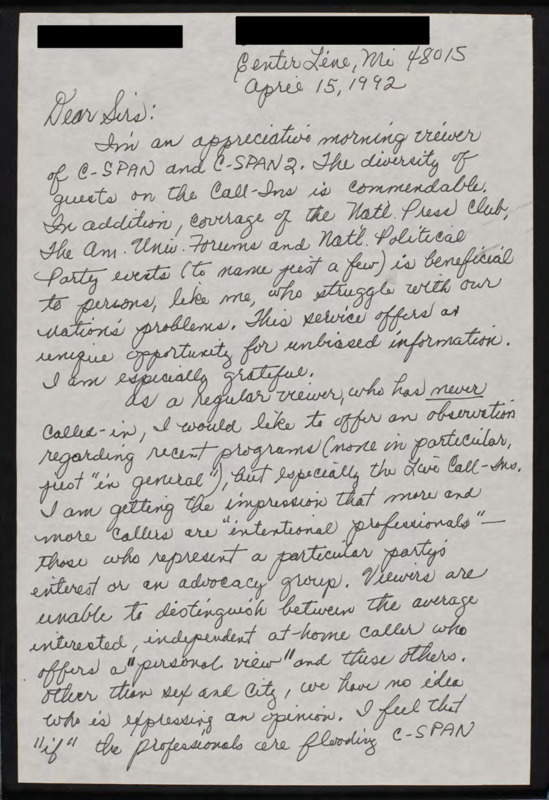 Center Line, Mi 48015
April 15, 1992
Dear Sirs:
I'm an appreciative morning viewer
of C-SPAN and C-SPAN 2. The diversity of
guests on the Call-Ins is commendable.
In addition, coverage of the Nat'l. Press Club,
The Am. Univ. Forums and Nat'l. Political
Party events (to name just a few) is beneficial
to persons, like me, who struggle with our
nations problems. This service offers an
unique opportunity for unbiased information.
I am especially grateful.
As a regular viewer, who has never
called-in, I would like to offer an observation
regarding recent programs (none in particular,
just "in general"), but especially the Live Call-Ins.
I am getting the impression that more and
more callers are "intentional professionals"—
those who represent a particular party's
interest or an advocacy group. Viewers are
unable to distinguish between the average
interested, independent at-home caller who
offers a "personal view" and these others.
Other than sex and city, we have no idea
who is expressing an opinion. I feel that
"if" the professionals are flooding C-SPAN